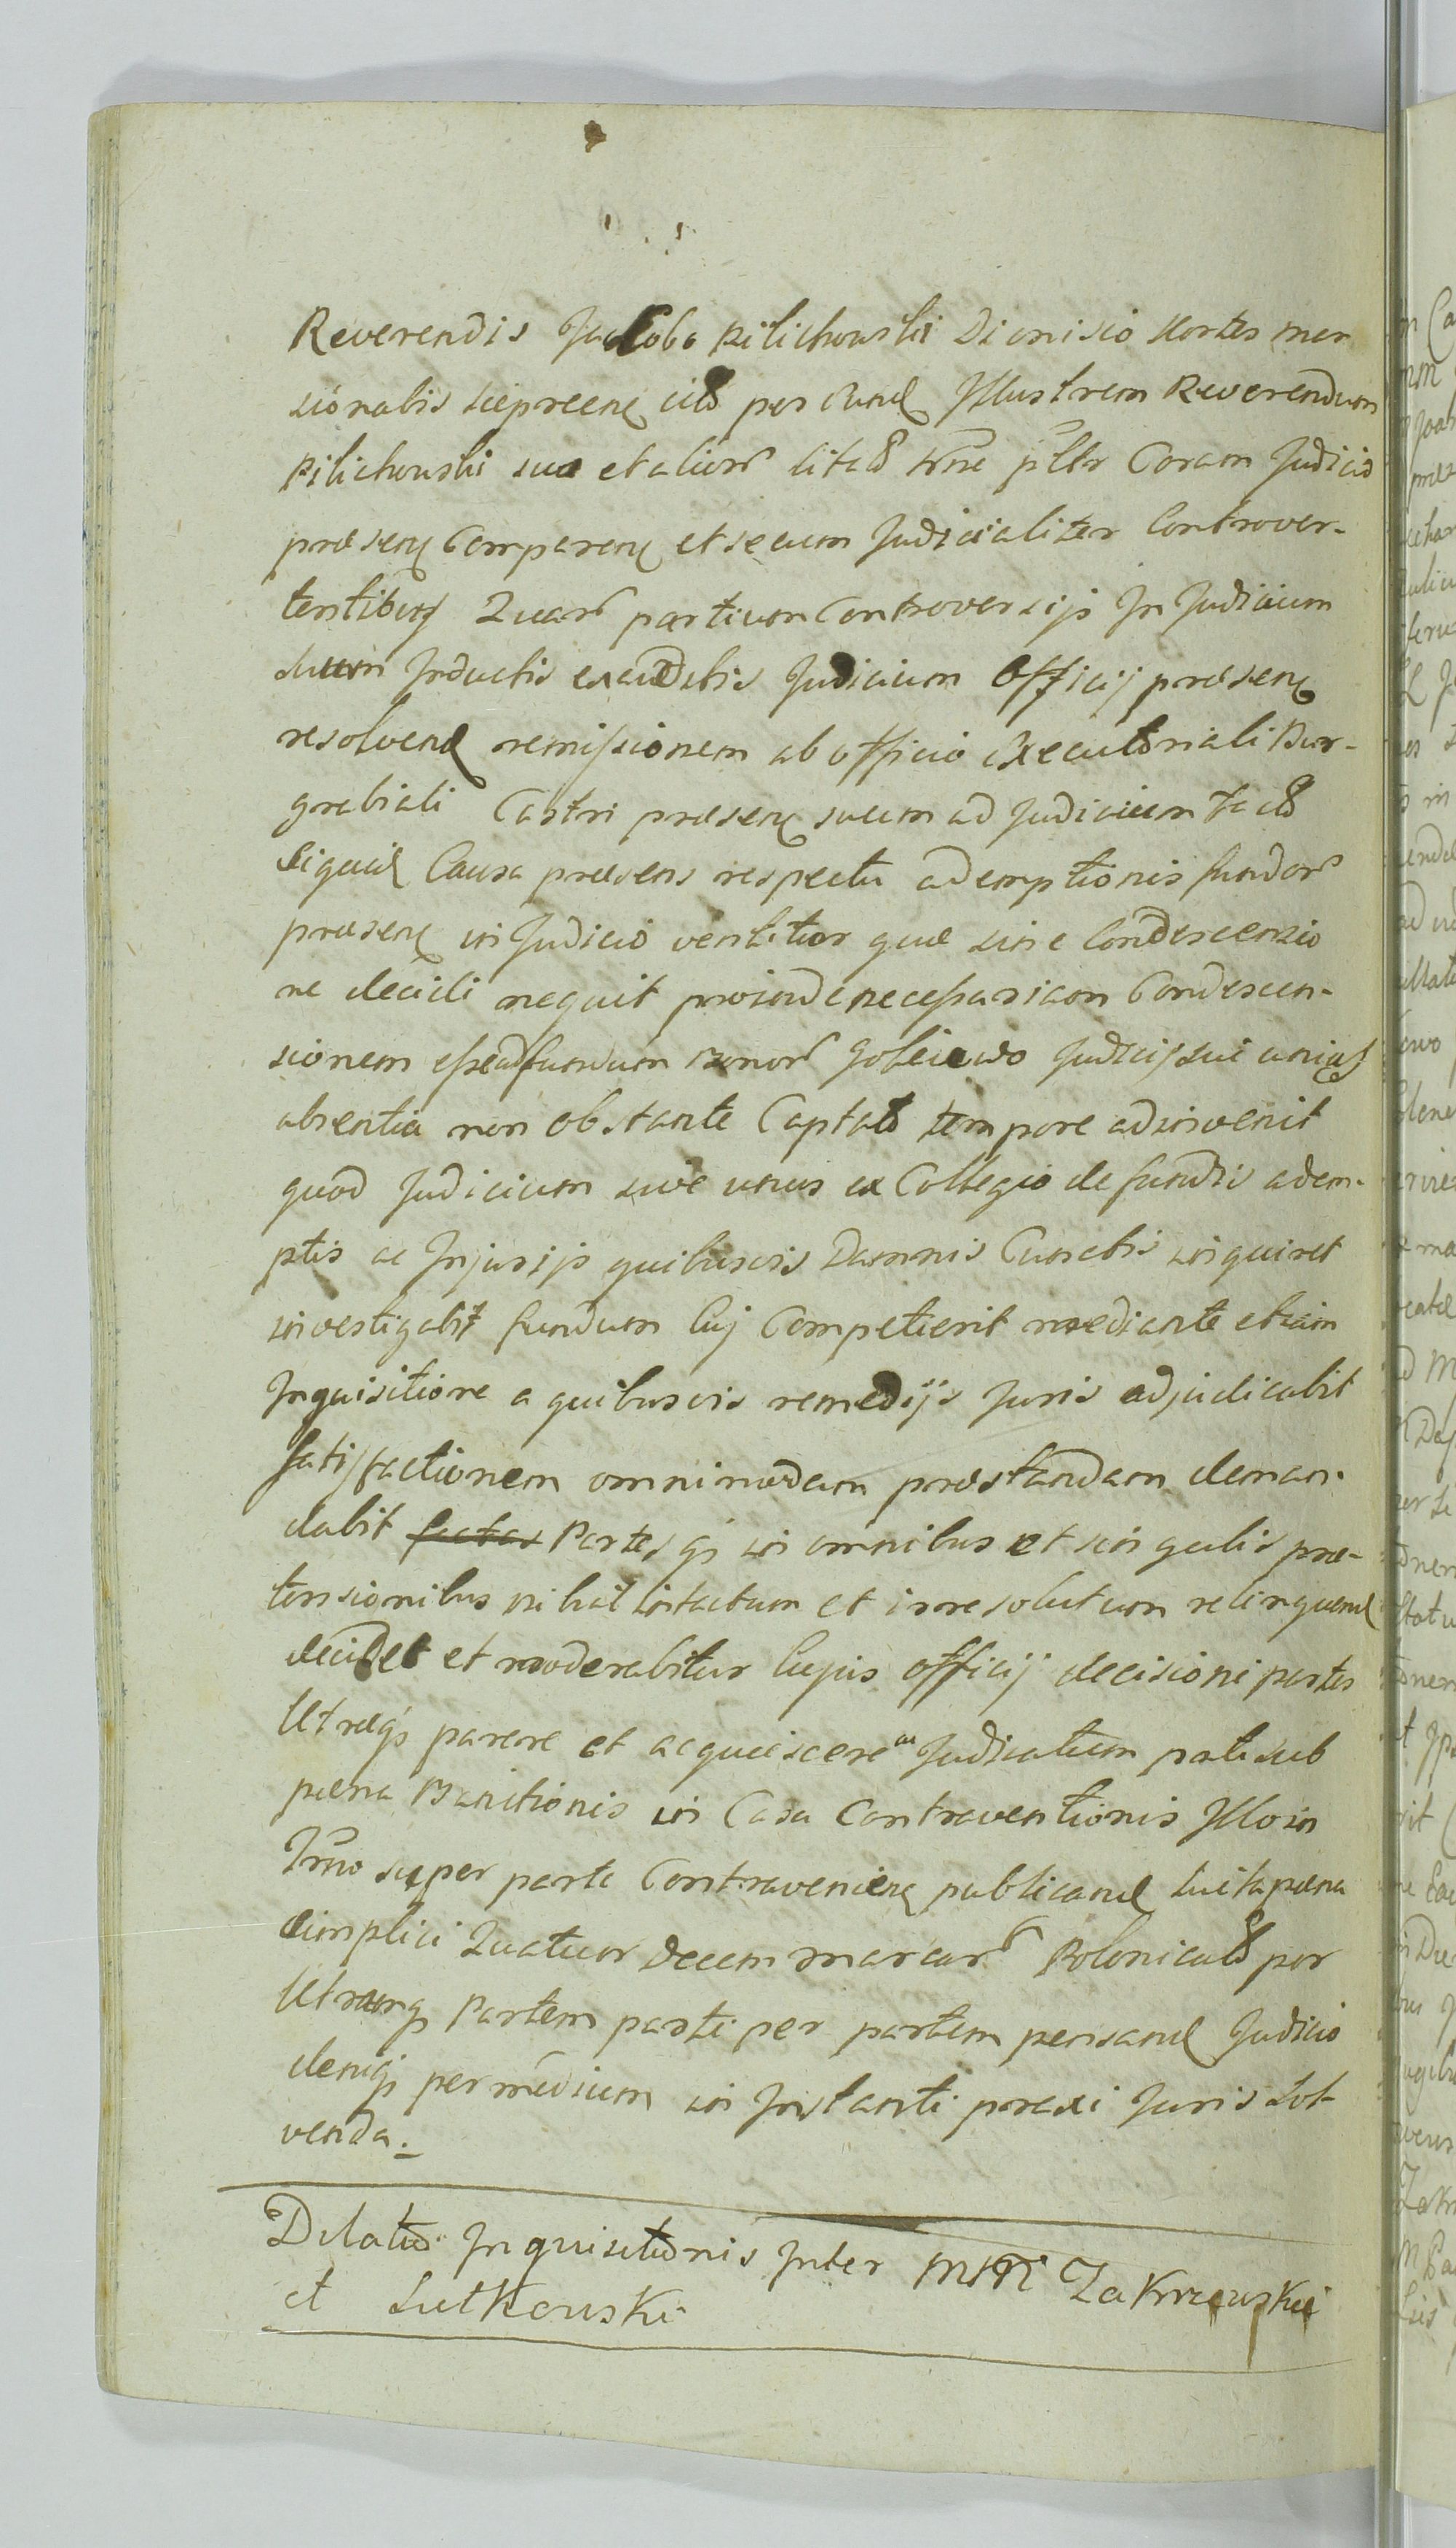 Reverendis Jacobo Pilichowski Dionisio Kortes man
sionalis
per eund Illustrem Reverendum
Pilichowski sua et alior coram Judicio
præsen comparen et secum Judicialiter Controver-
tentibus Quar partium Controversijs In Judicium
suum Inductis exauditis Judicium Officij præsen
resolvend remissionem ab officio executoriali Bur-
grabiali Castri præsen suum ad Judicium facta
siquid Causa præsens respectu ademptionis fundor
præsen in Judicio ventitur quæ sine Condescensio
ne decidi nequit proinde necessariam Condescen-
sionem esse ad fundum Bonor Judicij sui unius
absentia non obstante Captato tempore adinvenit
quod Judicium sive unus ex Collegio de fundi adem-
ptis ac Injurijs quibusvis Damnis Cunctis inquiret
investigabit fundum cuj Competierit mediante etiam
Inquisitione a quibusvis remedijs Juris adjudicabit
satisfactionem omnimodam præstandam deman-
dabit Partesq in omnibus et singulis præ-
tensionibus nihil intactum et irresolutum relinquend
decidet et moderabitur Cujus officij decisioni partes
Utræq parere et acquiescere ac Judicatum pati sub
pæna Banitionis in Casu Contraventionis Illo in
Trno super parte Contravenien publicand luita pæna
simplici Quatuor Decem marcar Polonical per
Utramq Partem parti per partem pensand Judicio
deniq per medium in Instanti præxi Juris sol-
venda.
Dilatio Inquisitionis Inter MM Zakrzewskie
et Lutkowski